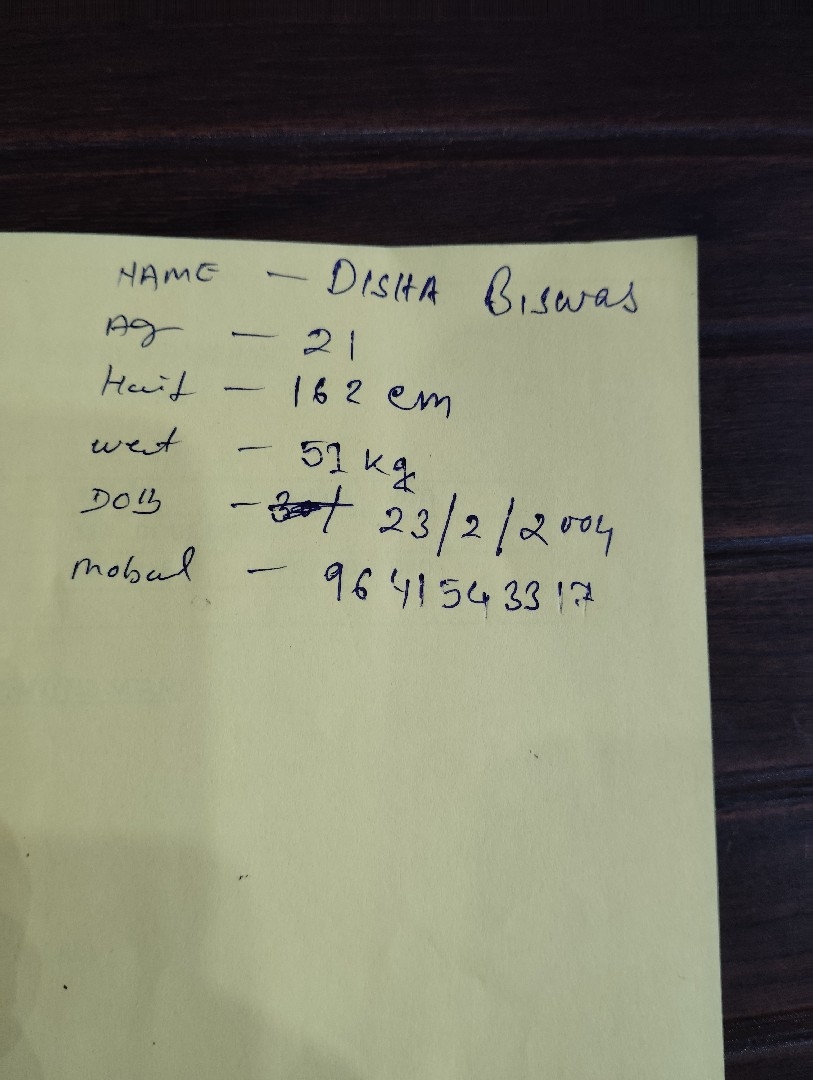 NAME - DISHA Biswas
Ag - 21
Hait - 162 cm
weat - 51 kg
DOB - 23/2/2004
mobal - 9641543317